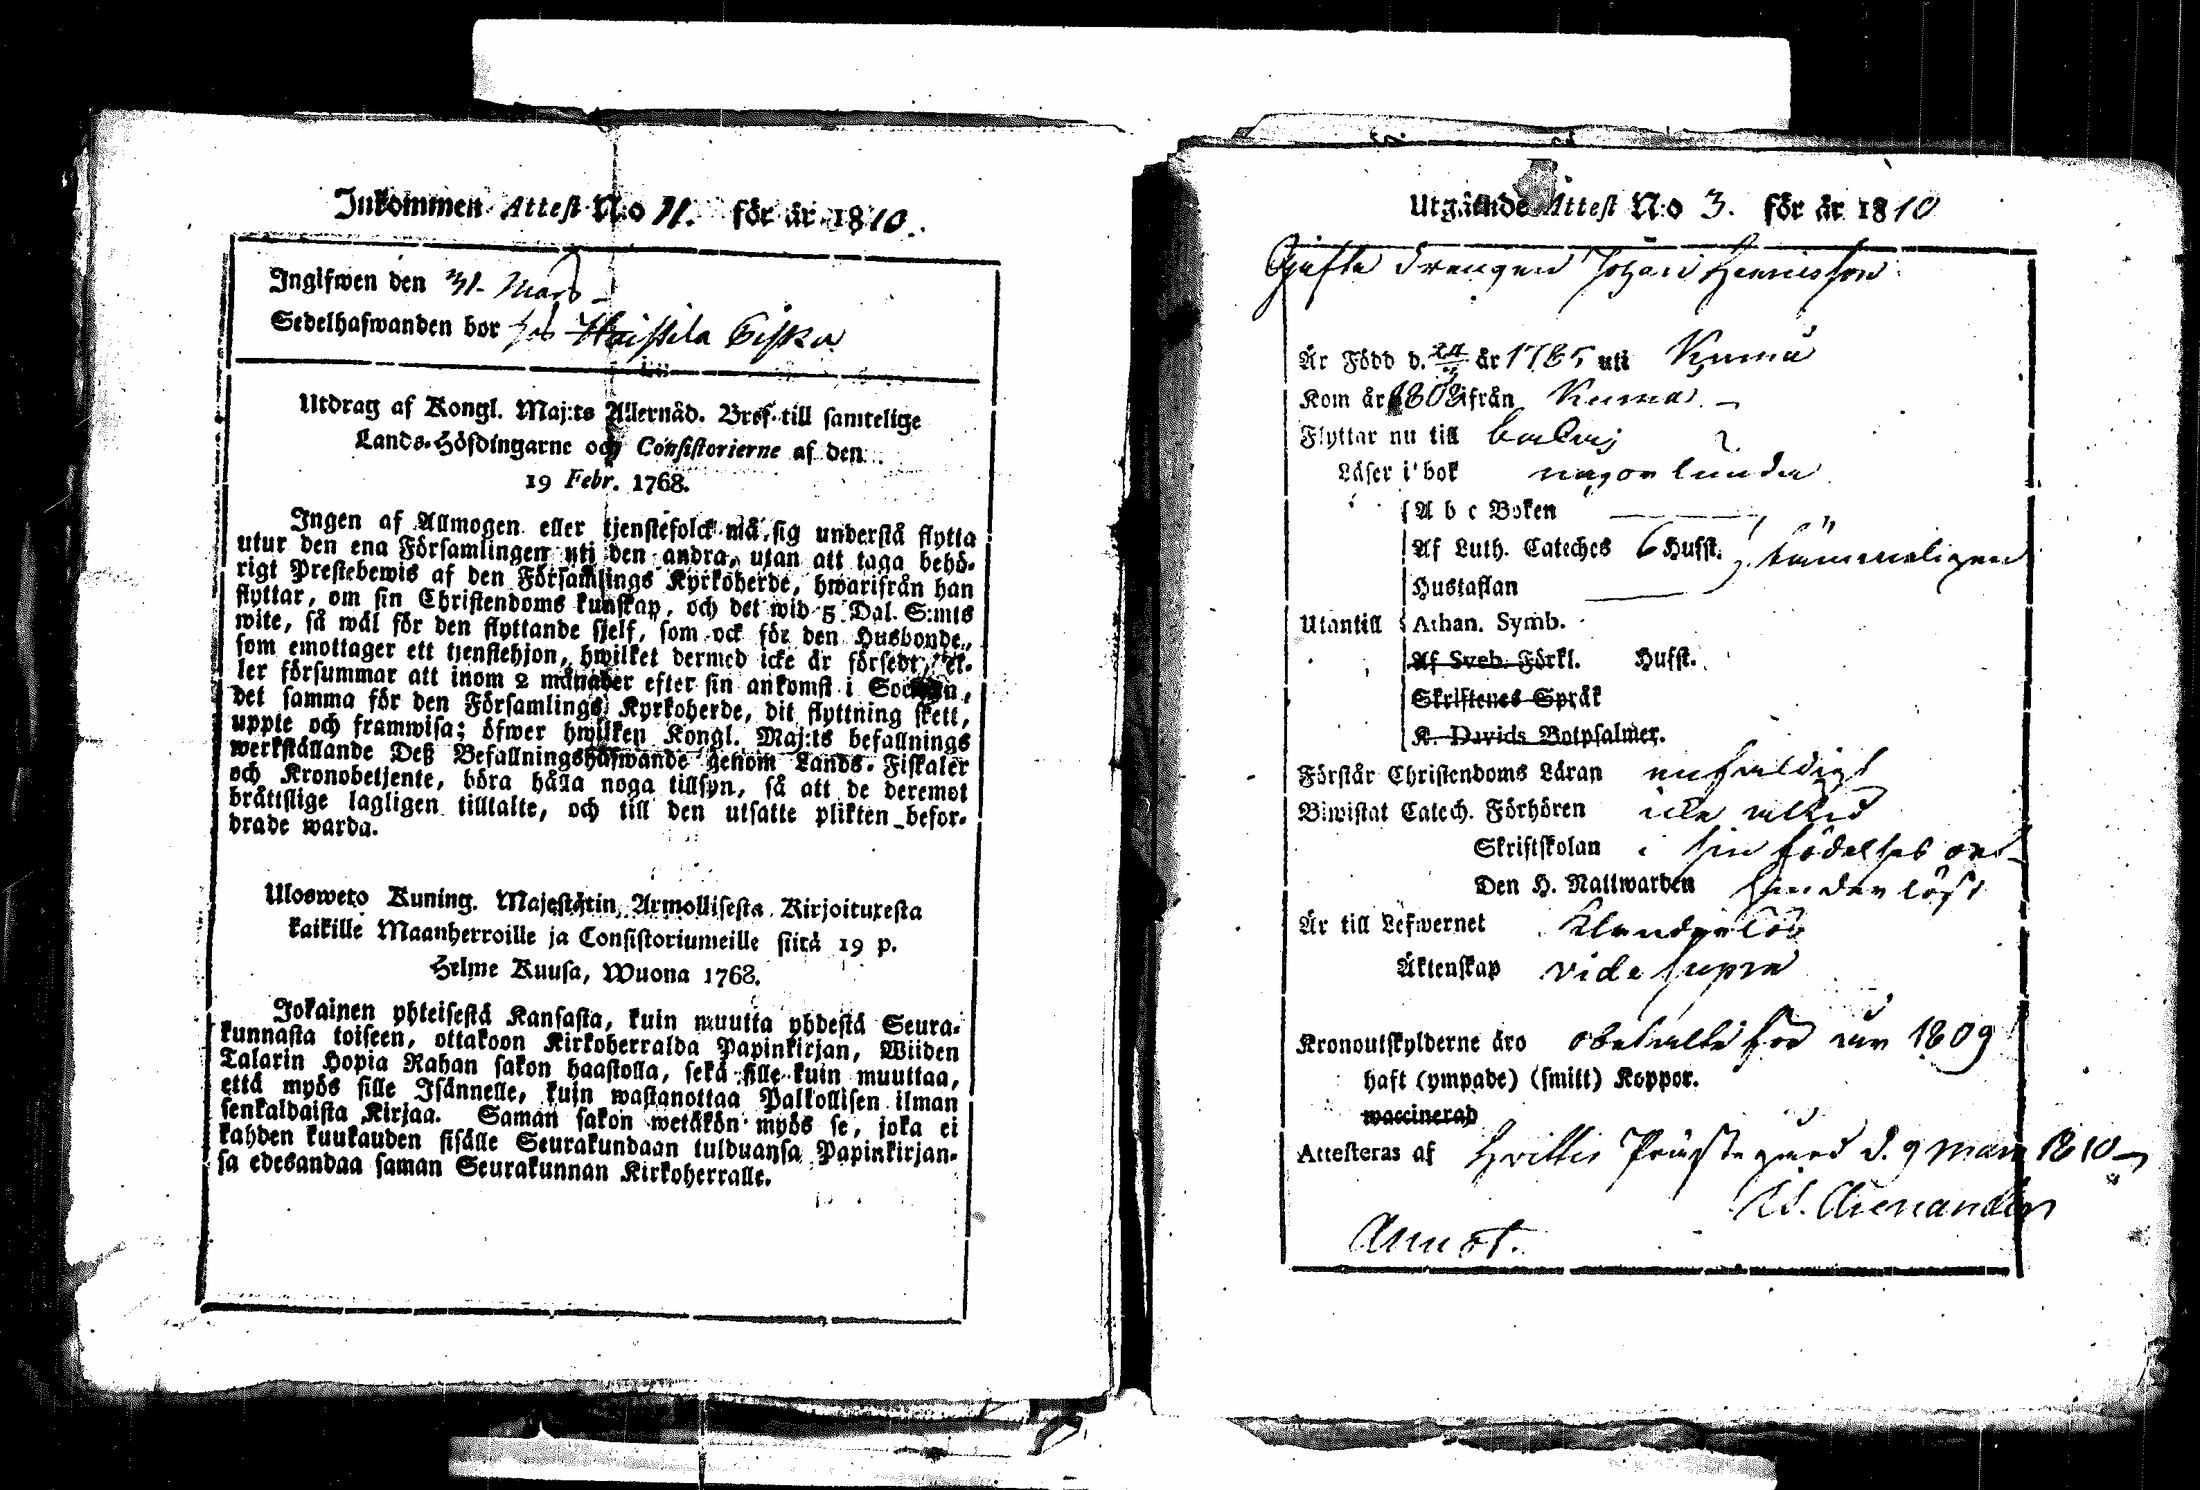 Inkommen Attest N:o 11. för år 1810.
Ingifwen den 31. Mars
Sedelhafwanden bor hos
Utdrag af Kongl. Maj:ts Allernåd. Bref till samtelige
Lands-Höfdingarne och Consistorierne af den
19 Febr. 1768.
Ingen af Allmogen eller tjenstefolck må sig understå flytta
utur den ena Församlingen uti den andra, utan att taga behö-
rigt Prestebewis af den Församlings Kyrkoherde, hwarifrån han
flyttar, om sin Christendoms kunskap, och det wid 5 Dal. S:mts
wite, så wäl för den flyttande sjelf, som ock för den Husbonde,
som emottager ett tjenstehjon, hwilket dermed icke är försedt, el-
ler försummar att inom 2 månader efter sin ankomst i Socknen,
det samma för den Församlings Kyrkoherde, dit flyttning skett,
uppte och framwisa; öfwer hwilken Kongl. Maj:ts befallnings
werkställande Deß Befallningshafwande genom Lands-Fiskaler
och Kronobetjente, böra hålla noga tillsyn, så att de deremot
bråttslige lagligen tilltalte, och till den utsatte plikten befor-
drade warda.
Ulosweto Kuning. Majestätin Armollisesta Kirjoituxesta
kaikille Maanherroille ja Consistoriumeille siitä 19 p.
Helme Kuusa, Wuona 1768.
Jokainen yhteisestä Kansasta, kuin muutta yhdestä Seura-
kunnasta toiseen, ottakoon Kirkoherralda Papinkirjan, Wiiden
Talarin Hopia Rahan sakon haastolla, sekä sille kuin muuttaa,
että myös sille Isännelle, kuin wastanottaa Palkollisen ilman
senkaldaista Kirjaa. Saman sakon wetäkön myös se, joka ei
kahden kuukauden sisälle Seurakundaan tulduansa Papinkirjan-
sa edesandaa saman Seurakunnan Kirkoherralle.
Utgående Attest N:o 3. för år 1810
Gifta drengen Johan Henricsson
Är Född d. år 1785 uti Kumå
Kom år 1808 ifrån Kumo
Flyttar nu till
Läser i bok någorlunda
A b c Boken
Af Luth. Cateches 6 Hufst. tämmeligen
Hustaflan
Utantill Athan. Symb.
Af Sveb. Förkl. Hufst.
Skriftenes Språk
K. Davids Botpsalmer.
Förstår Christendoms Läran enfaldigt
Biwistat Catech. Förhören icke alltid
Skriftskolan i sin födelses ort
Den H. Nattwarden hinderlöst
Är till Lefwernet Klanderlös
Äktenskap vide supra
Kronoutskylderne äro obetalte för år 1809
haft (ympade) (smitt) Koppor.
waccinerad
Attesteras af Hvittis Prästegård d. 9 Mars 1810